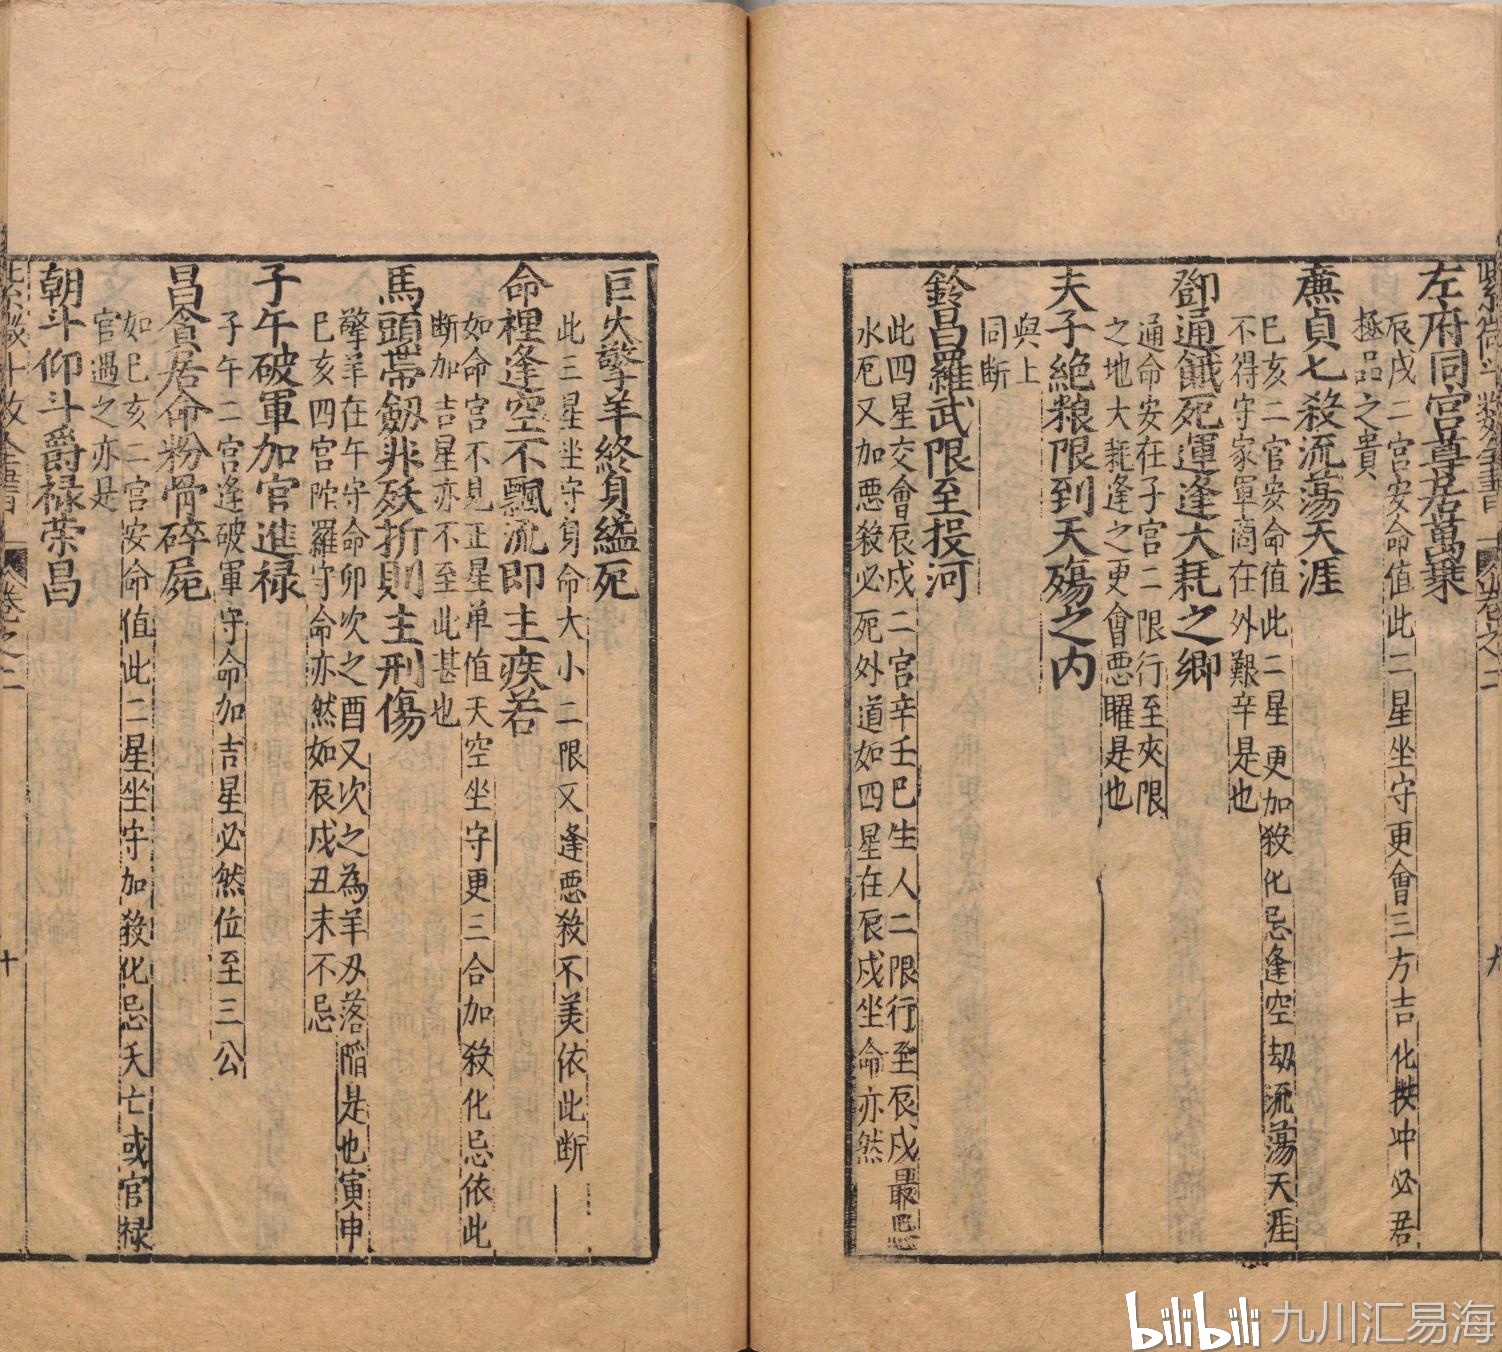 紫微斗數全書
卷之二
九
左府同宮尊居萬乘
辰戌二宮安命值此二星坐守更會三方吉化拱冲必君
極品之貴
廉貞七殺流蕩天涯
巳亥二宫安命值此二星更加殺化忌逢空劫流蕩天涯
不得守家軍商在外艱辛是也
鄧通餓死運逢大耗之鄉
通命安在子宫二限行至夾限
之地大耗逢之更會惡曜是也
夫子絶粮限到天殤之内
與上
同断
鈴昌羅武限至投河
此四星交會辰戌二宫辛壬巳生人二限行至辰戌最忌
水厄又加惡殺必死外道如四星在辰戌坐命亦然
巨火擎羊終身縊死
此三星坐守身命大小二限又逢惡殺不美依此断
命裡逢空不飄流即主疾若
如命宫不見正星单值天空坐守更三合加殺化忌依此
断加吉星亦不至此甚也
馬頭帶劔非殀折則主刑傷
擎羊在午守命卯次之酉又次之為羊刃落陷是也寅申
巳亥四宫陀羅守命亦然如辰戌丑未不忌
子午破軍加官進禄
子午二宫逢破軍守命加吉星必然位至三公
昌貪居命粉骨碎屍
如巳亥二宫安命值此二星坐守加殺化忌夭亡或官禄
官遇之亦是
朝斗仰斗爵禄荣昌
紫微斗數全書
卷之二
十
bilibili 九川汇易海